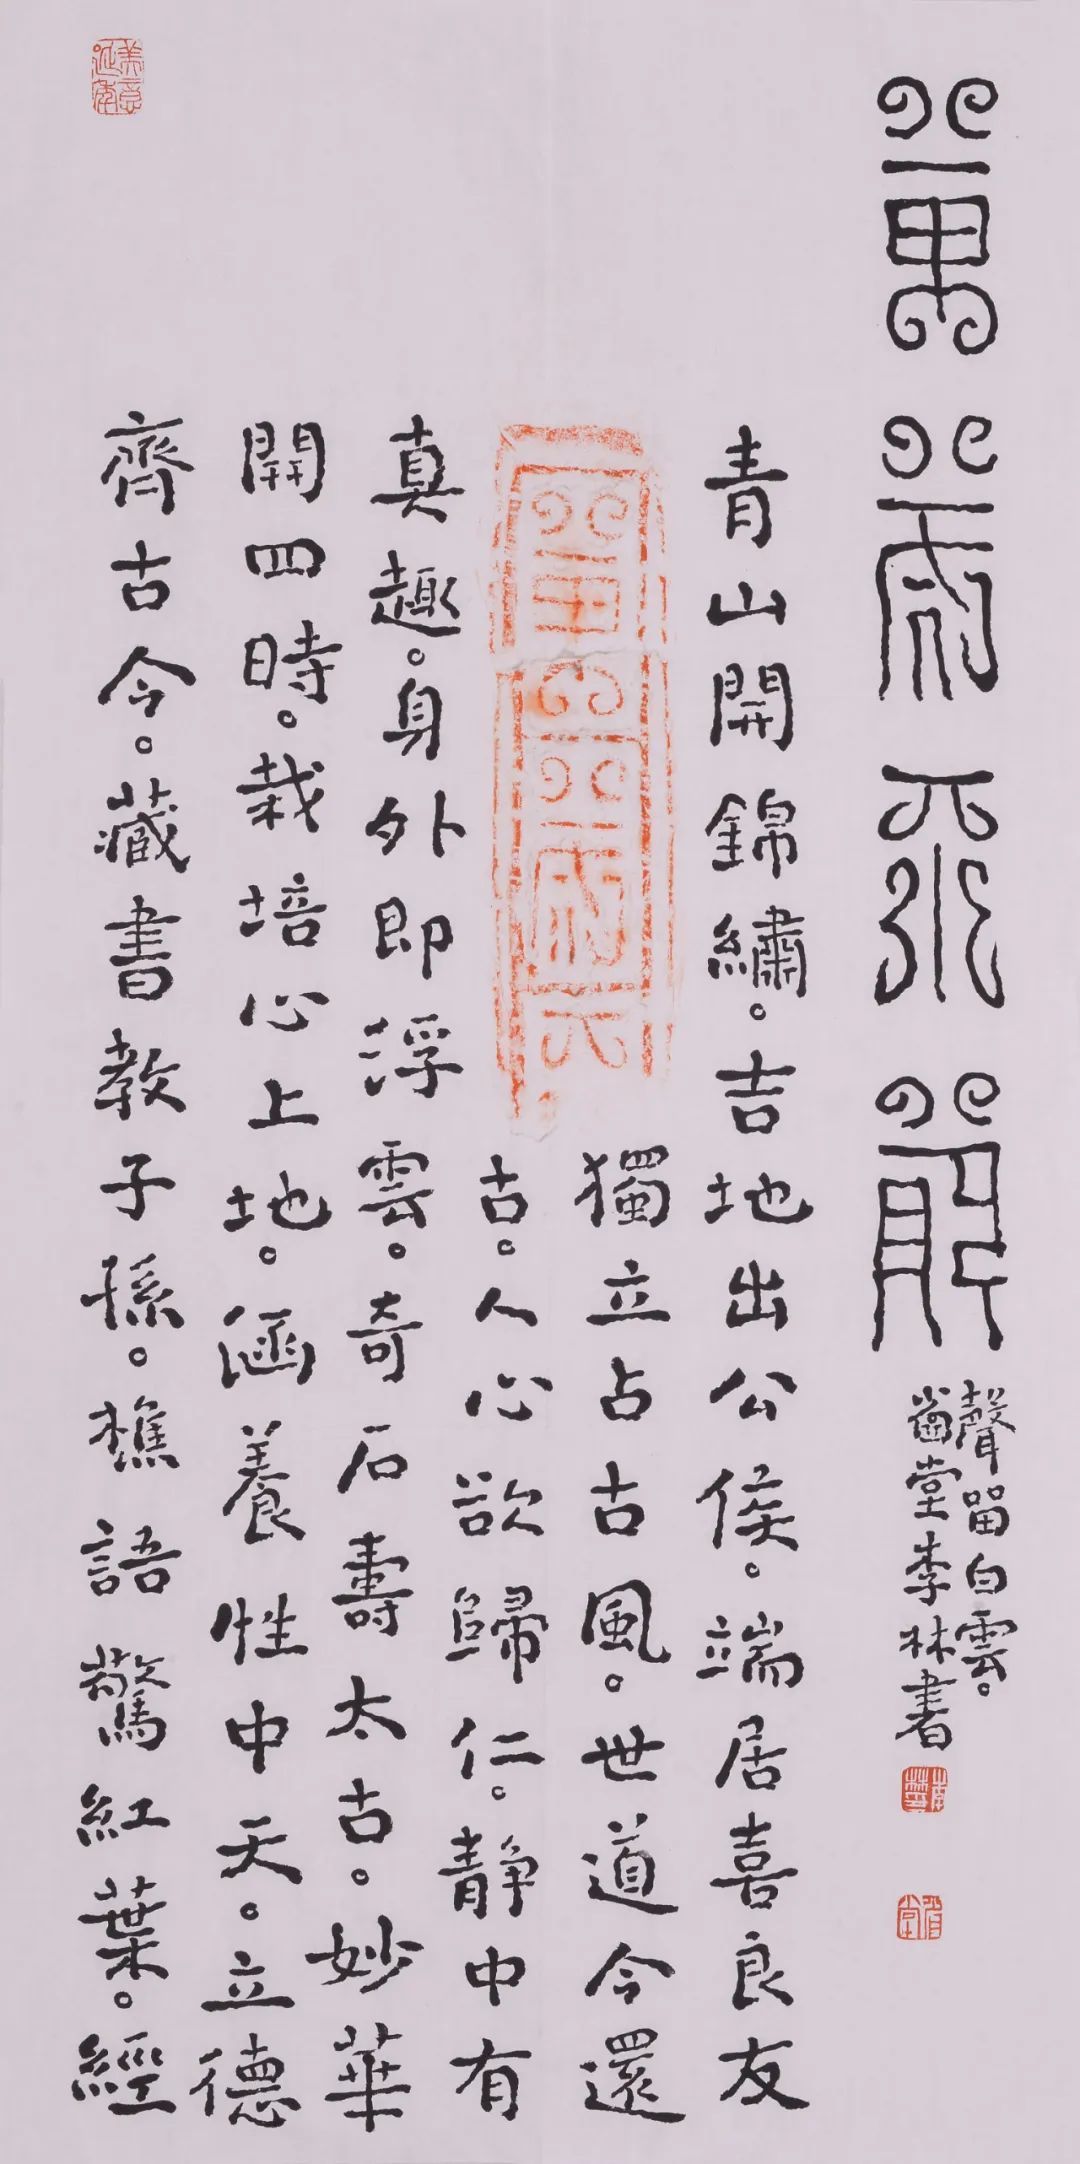 青山開錦繡。吉地出公侯。端居喜良友
獨立占古風。世道今還
古。人心欲歸仁。静中有
真趣。身外即浮雲。奇石壽太古。妙華
開四時。栽培心上地。涵養性中天。立德
齊古今。藏書教子孫。樵語驚紅葉。經
聲留白雲。
堂李林書
美意延年